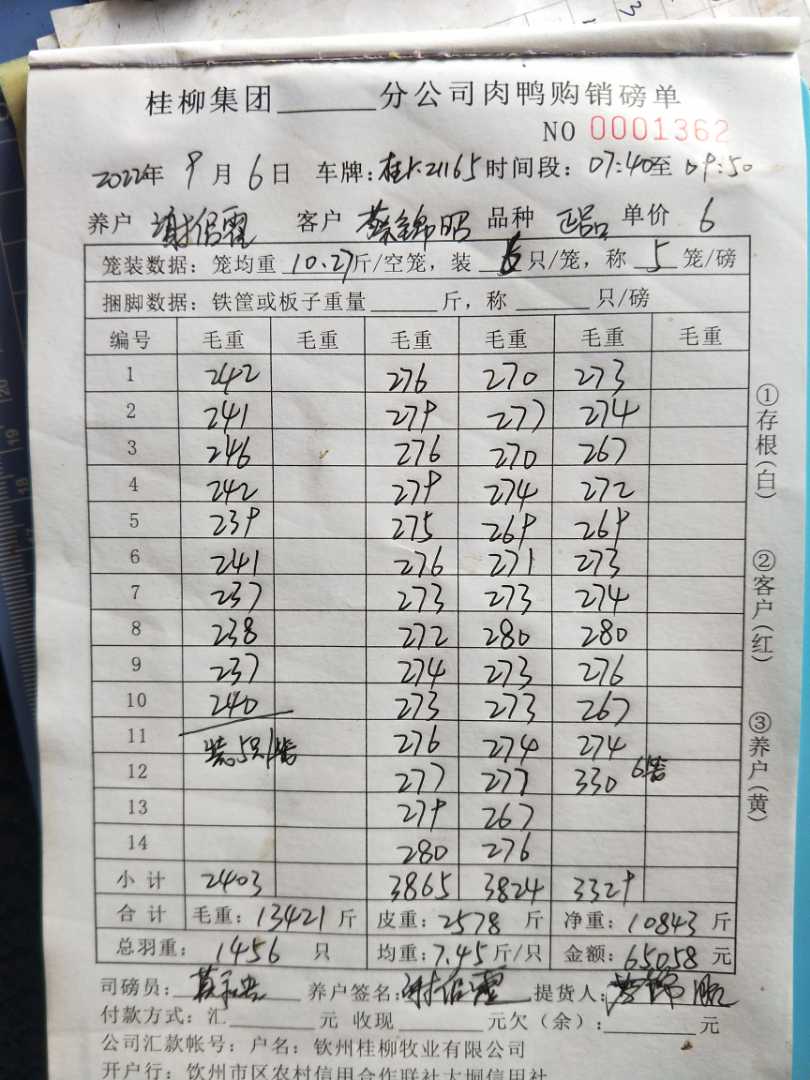 桂柳集团______分公司肉鸭购销磅单
NO 0001362
2022年 9月 6日 车牌:桂K21165 时间段:07:40至 09:50
养户 谢侣霍 客户 蔡锦昭 品种 正品 单价 6
笼装数据:笼均重 10.27斤/空笼,装 6只/笼,称 5 笼/磅
捆脚数据:铁筐或板子重量______斤,称______只/磅
编号 毛重 毛重 毛重 毛重 毛重 毛重
1 242 276 270 273
2 241 279 277 274
3 246 276 270 267
4 242 279 274 272
5 239 275 269 269
6 241 276 271 273
7 237 273 273 274
8 238 272 280 280
9 237 274 273 276
10 240 273 273 267
11 装5只/笼 276 274 274
12 277 277 330 6笼
13 279 267
14 280 276
小计 2403 3865 3824 3329
合计 毛重:13421斤 皮重:2578 斤 净重:10843斤
总羽重: 1456 只 均重:7.45斤/只 金额:65058元
司磅员: 养户签名:谢侣霍 提货人:
付款方式:汇______元 收现______元欠(余):______元
公司汇款帐号:户名:钦州桂柳牧业有限公司
开户行:钦州市区农村信用合作联社大垌信用社
①存根(白)
②客户(红)
③养户(黄)